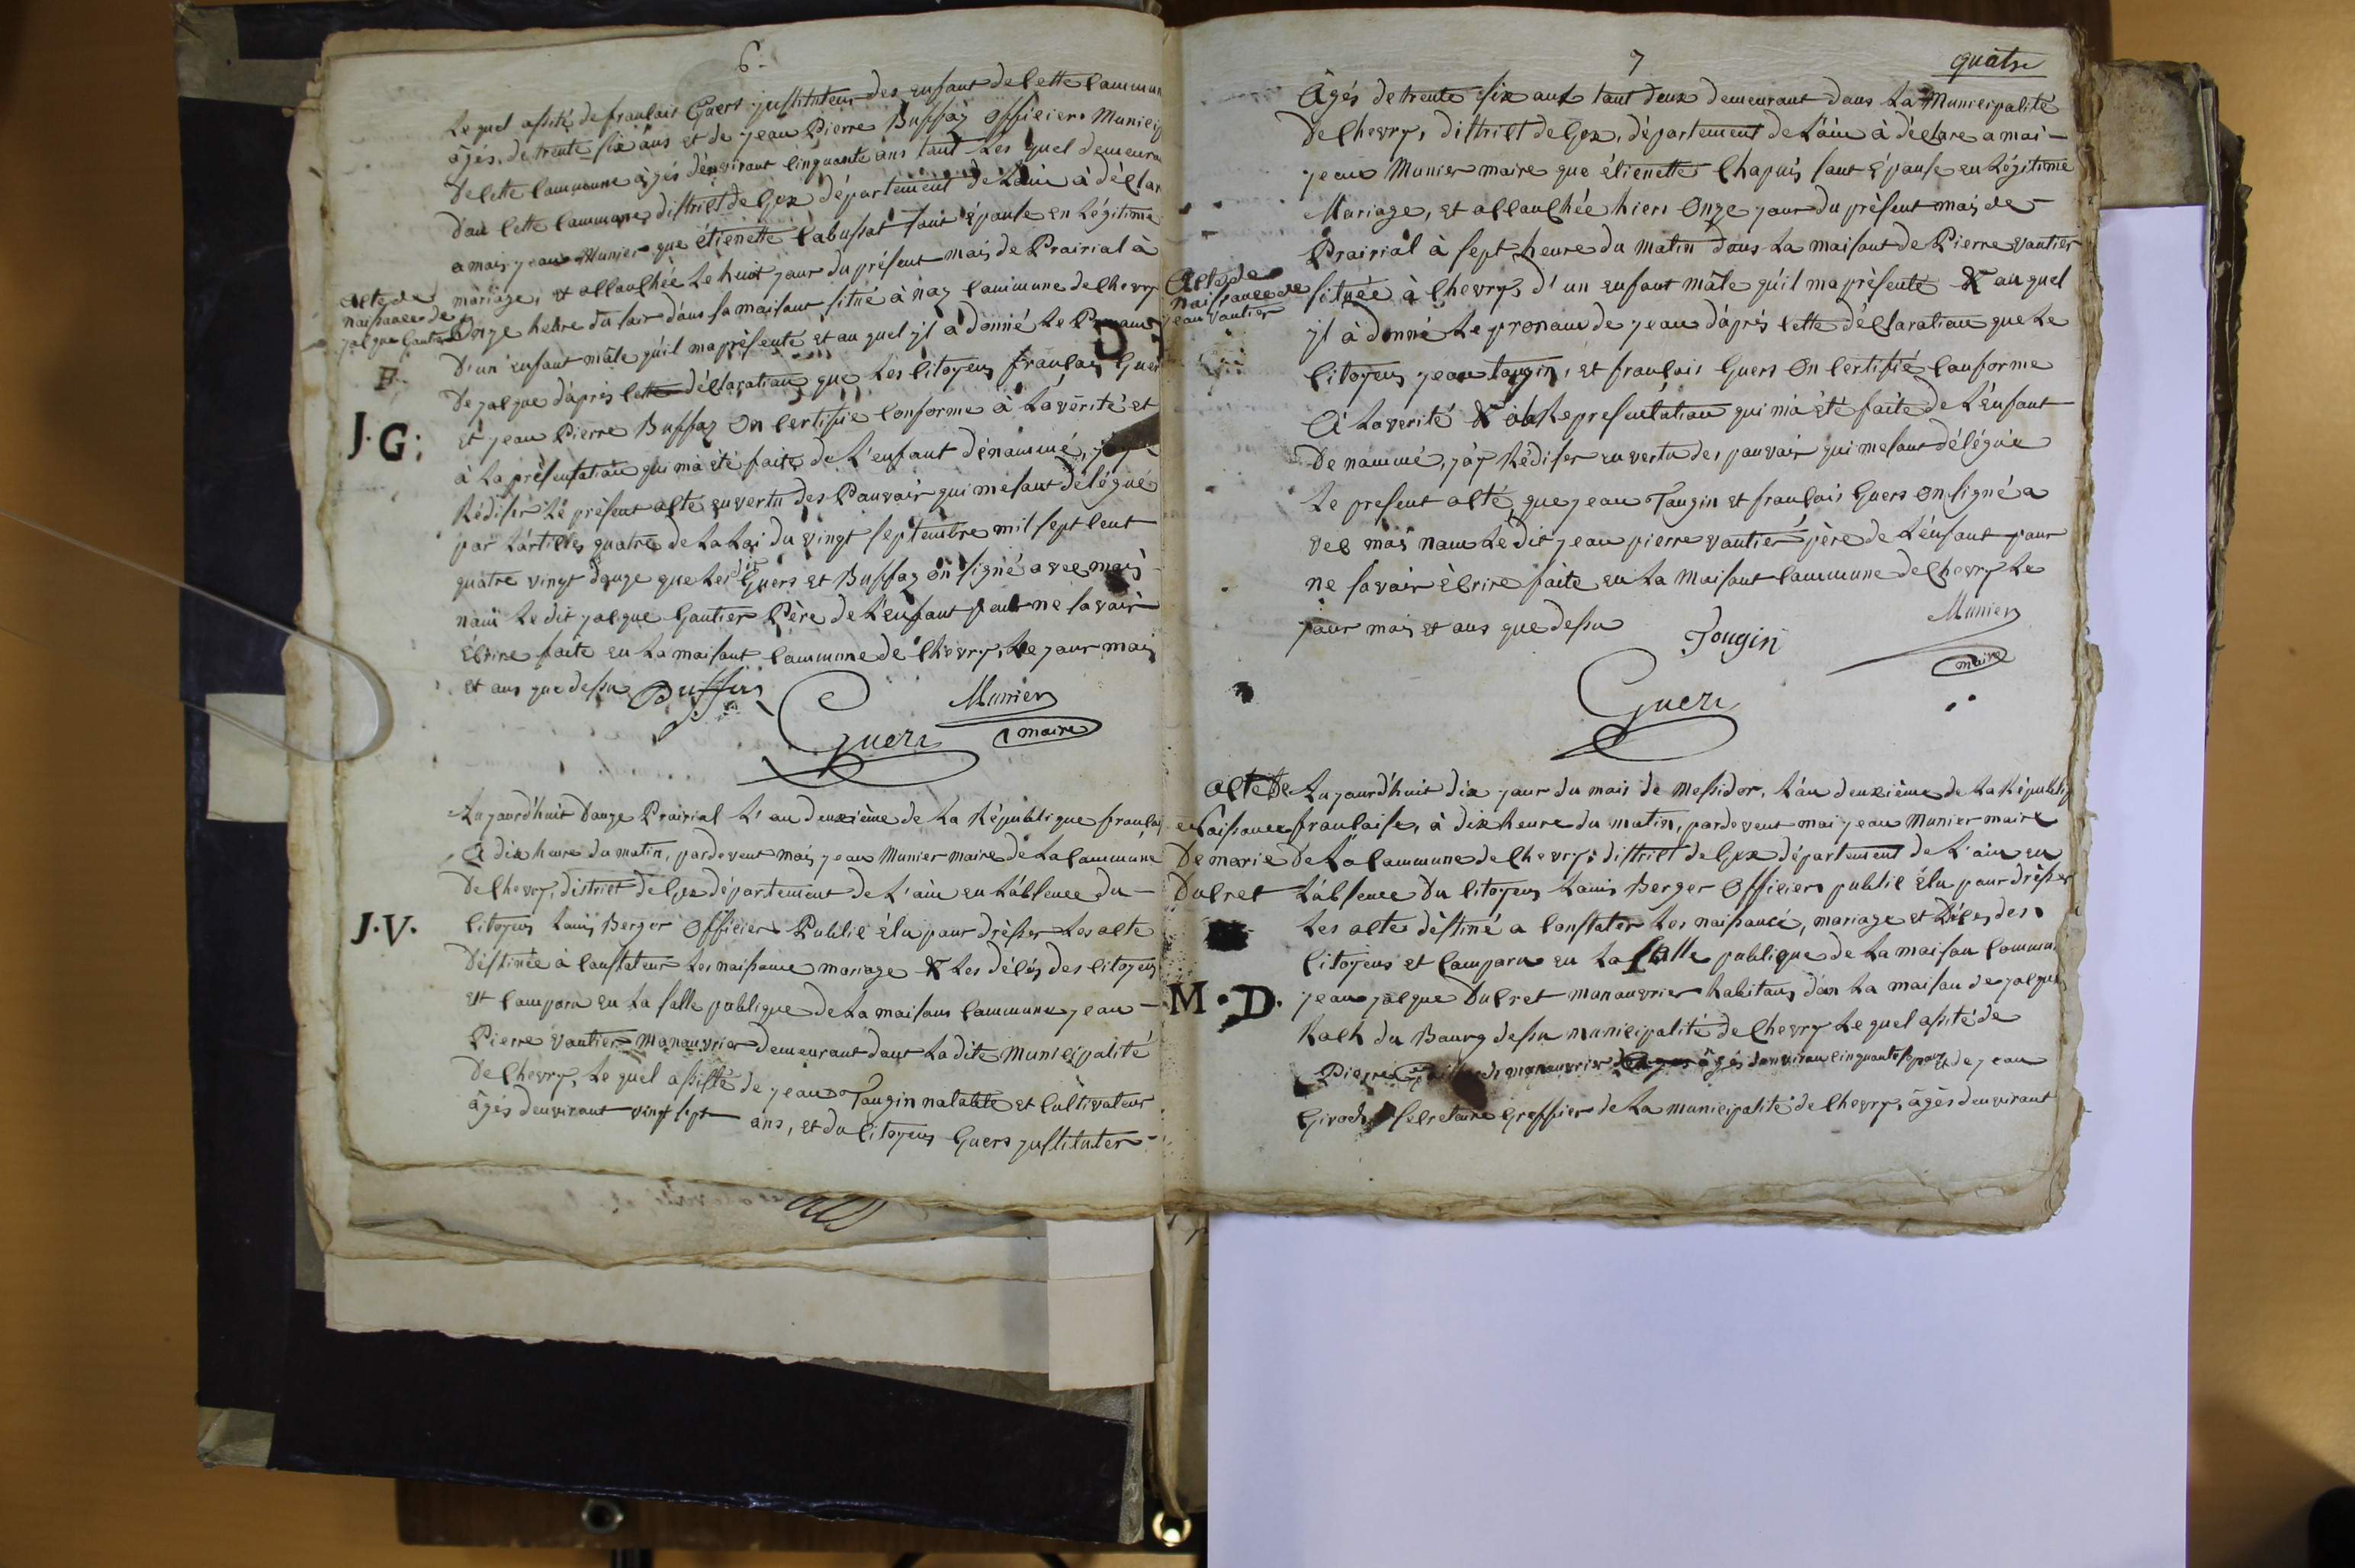 6.
Le quel assité de francois Guers jnstituteur des enfant de cette commun
âgés de trente six ans et de jean Pierre Buffaz officier Municip
de cette commune âgés denviront cinquante ans tout les quel demeurant
dan cette commune district de Gex département de Lain à déclar
a moi jean Munier que étienette Cabussat sont épouse en Légitime
mariage, et accouchée Le huit jour du présent mois de Prairial à
Onze heure du soir dans sa maisont situé à naz commune de chevry
D'un enfant mâle qu'il ma présenté et au quel jl à donné Le Pronom
De jacque d'après cette déclaration que Les citoyens francois Guers
et jean Pierre Buffaz on certifié conforme à La vérité et
à La présentation qui m'a été faite de L'enfant dénommé, j'ay
Rédiser Le présent acte en vertu des Pouvoir qui me sont délégué
par L'articles quatre de La Loi du vingt septembre mil sept cent
quatre vingt douze que Les dit Guers et Buffaz on signé avec moi
non Le dit jacque Gautier Père de L'enfant pour ne savoir
Ecrire faite en La maisont commune de chevry, Le jour mois
et ans que dessu
Guers
Munier
maire
acte de
naissance de
jacque Gautier
F.
J.G.
D
Aujourd'huit douze Prairial L'an deuxième de La République francai
A dix heure du matin, pardevent moi jean Munier maire de La commune
De chevry, district de Gex département de L'ain en L'absence du
citoyen Louis Berger Officier Public élu pour drésser Les acte
Déstinée à constateur Les naissance mariage & Les décés des citoyens
et comparu en La salle publique de La maisons commune jean
Pierre vautier Manouvrier demeurant dant La dite Municipalité
De chevry, Le quel assisté de jean Tougin natable et cultivateur
âgés denviront vingt sept ans, et du citoyen Guers jnstituter
J.V.
7
quatre
Agés de trente six ant tout deux demeurant dans La Municipalité
De chevry, district de Gex, département de L'ain à déclare a moi
jean Munier maire que étienette Chapuis sont Epouse en Légitime
Mariage, et accouchée hiers Onze jour du présent mois de
Prairial à sept heure du matin dans La maisont de Pierre vautier
située à chevry, d'un enfant mâle qu'il ma présenté & au quel
jl à donné Le pronom de jean d'après cette déclaration que Le
citoyen jean tougin, et francois Guers on certifié conforme
A La verité & à La presentation qui m'a été faite de L'enfant
De nommé, j'ay Rédiser en vertu des pouvoir qui me sont délégué
Le present acté que jean Tougin et francois Guers on signé a
vec moi non Le dit jean pierre vautier père de L'enfant pour
ne savoir ècrire faite en La Maisont commune de chevry Le
jour mois et ans que dessu
Tougin
Munier
maire
Guers
Acte de
naissance de
jean vautier
Aujourd'huit dix jour du mois de Messidor, L'an deuxième de La Républiq
francaise, à dix heure du matin, pardevent moi jean Munier maire
De La commune de chevry, district de Gex département de L'ain en
L'absence Du citoyen Louis Berger Officier public élu pour drésser
Les acte déstiné a constater Les naissancé, mariage et Décés des
citoyens et comparu en La salle publique de La maison commun
jean jacque Ducret manouvrier habitans dan La maison de jacque
Roch du Bourg dessu municipalité de chevry Le quel assité de
Pierre manouvrier âgés denviront cinquante et de jean
Girod secretaire Greffier de La municipalité de chevry, âgés denviront
acte De
naissance
De marie
Ducret
M.D.